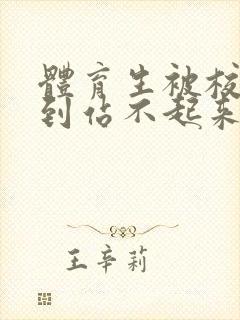 體育生被
到佔不起来
王辛莉